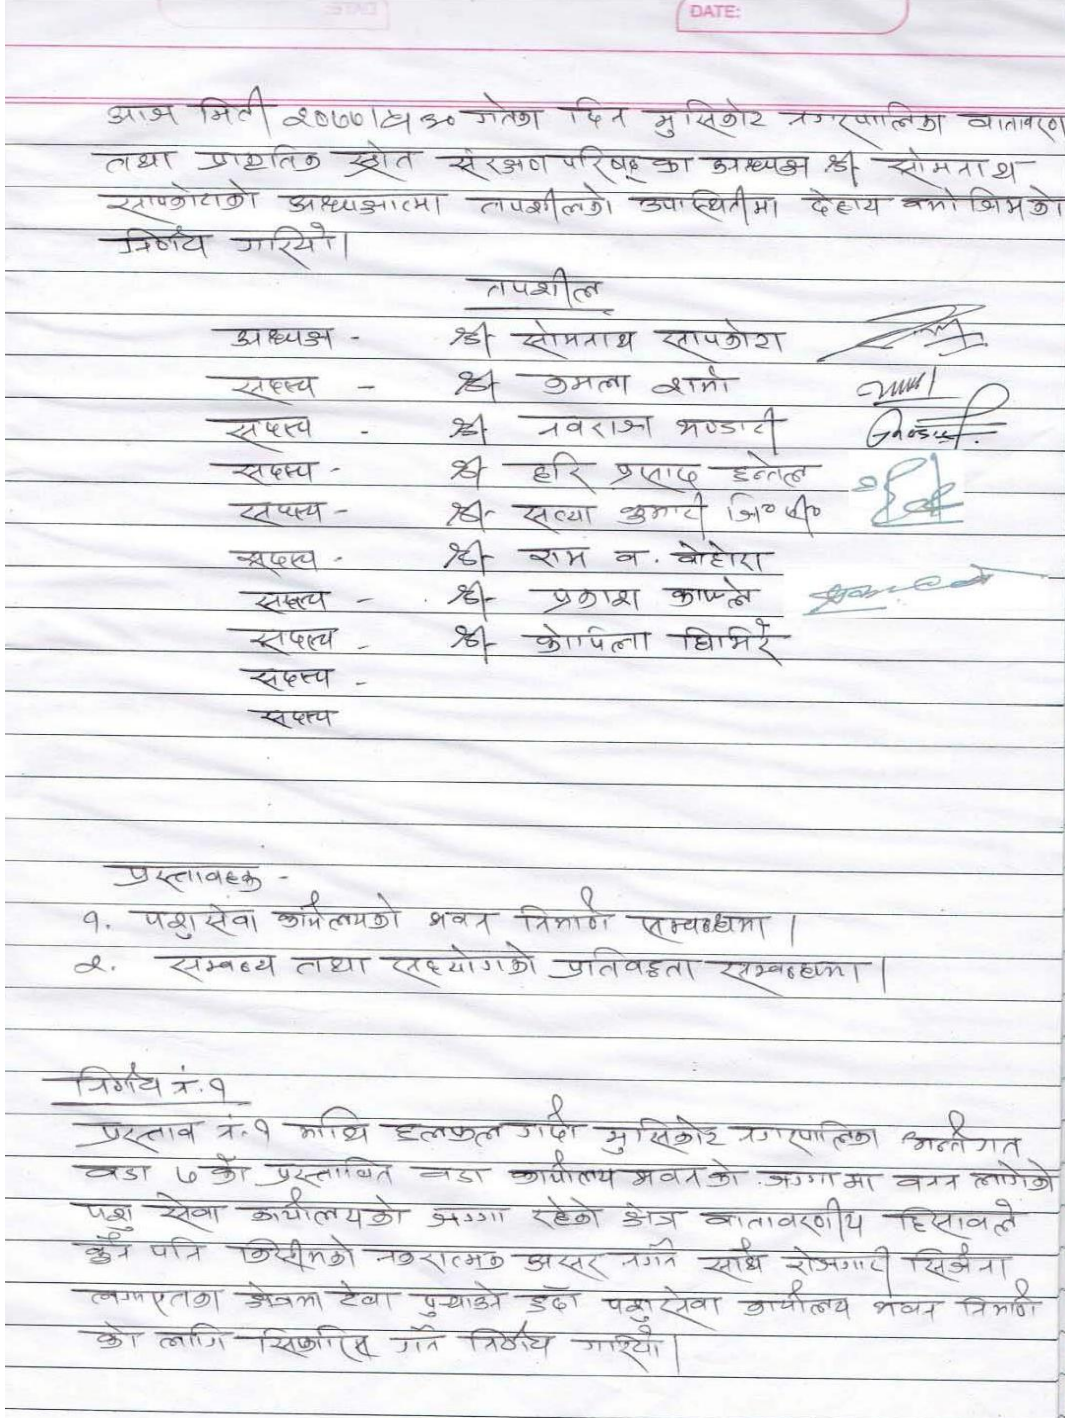 DATE:
आज मिती २०७७।५।३० गतेका दिन मुसिकोट नगरपालिका वातावरण
तथा प्राकृतिक स्रोत संरक्षण परिषद्का अध्यक्ष श्री सोमनाथ
सापकोटाको अध्यक्षतामा तपशीलको उपास्थितीमा देहाय बमोजिमको
निर्णय गरियो।
तपशील
अध्यक्ष - श्री सोमनाथ सापकोटा
सदस्य - श्री कमला शर्मा
सदस्य - श्री नवराज भण्डारी
सदस्य - श्री हरि प्रसाद
सदस्य - श्री सत्या कुमारी वि०क०
सदस्य - श्री राम ब. बोहोरा
सदस्य - श्री प्रकाश काफ्ले
सदस्य - श्री कोपिला घिमिरे
सदस्य -
सदस्य
प्रस्तावहरु -
१. पशु सेवा कार्यलयको भवन निर्माण सम्वन्धमा।
२. सम्बन्धय तथा सहयोगको प्रतिवद्दता सम्बन्धमा।
निर्णय नं.१
प्रस्ताव नं.१ माथि छलफल गर्दा मुसिकोट नगरपालिका अर्न्तगत
वडा ७ को प्रस्तावित वडा कार्यालय भवनको जग्गामा बन्न लागेको
पशु सेवा कार्यालयको जग्गा रहेको क्षेत्र वातावरणीय हिसावले
कुनै पनि किसीमको नकरात्मक असर नगर्ने साथै रोजगारी सिर्जना
लगाएतका क्षेत्रमा टेवा पुर्‍याउने हुँदा पशुसेवा कार्यालय भवन निर्माण
को लागि सिफारिस् गर्ने निर्णय गरियो।